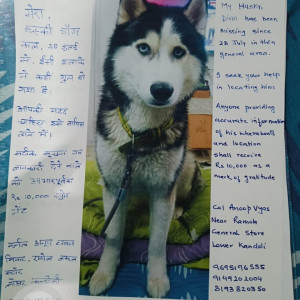 मेरा
हस्की डॉग
28 जुलाई
से इसी इलाके
से कहीं गुम हो
गया है।
आपकी मदद
चाहिए उसे वापिस
सटीक सूचना एवं
जानकारी देने वाले
को आभारपूर्वक
Rs 10,000
जनरल
स्टोर
My Husky,
has been
missing since
28 July in this
general area.
I seek your help
in locating him
Anyone providing
accurate information
of his whereabouts
and location
shall receive
Rs 10,000 as a
mark of gratitude
Col Anoop Vyas
Near Ramola
General Store
Lower Kandoli
9695196555
9149202004
8193820350